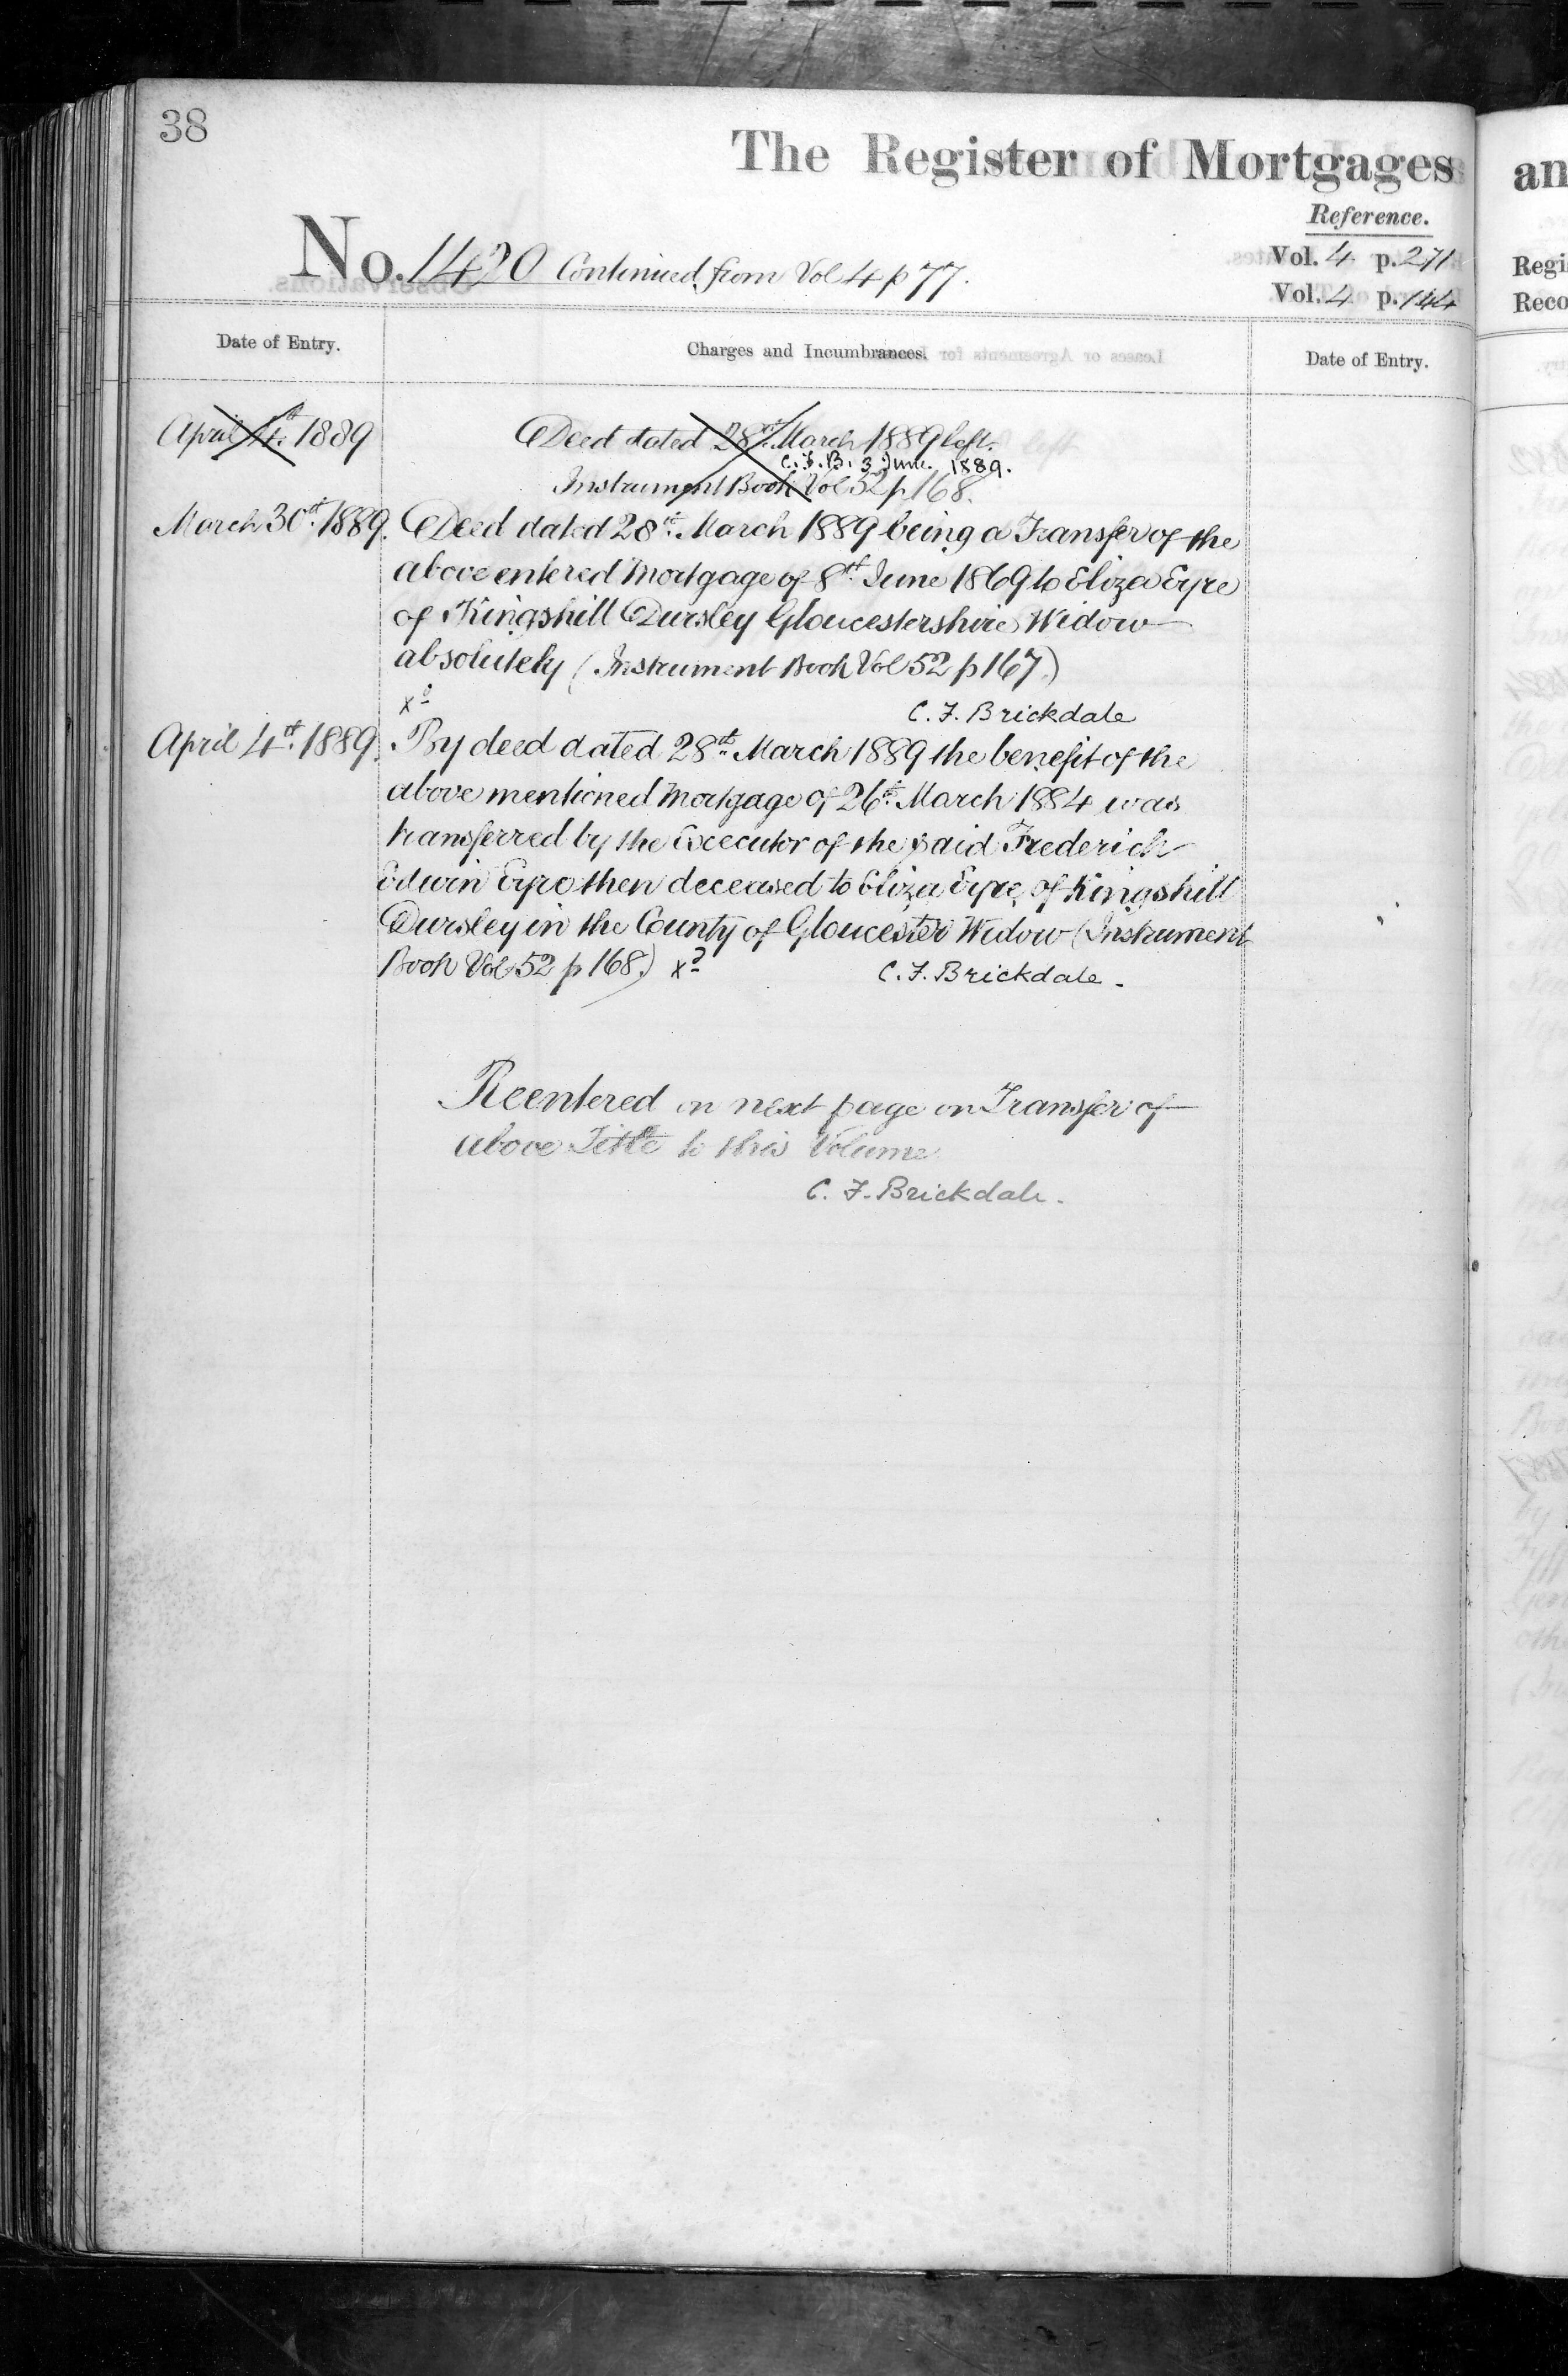 38
The Register of Mortgages
Reference.
No. 1420 Continued from Vol 4 p 77.
Vol. 4 p. 271
Vol. 4 p. 144
Date of Entry.
Charges and Incumbrances.
Date of Entry.
April 4th 1889
Deed dated 28th March 1889 left.
C. F. B. 3 June. 1889.
Instrument Book Vol 52 p 168.
March 30th 1889. Deed dated 28th March 1889 being a Transfer of the
above entered Mortgage of 8th June 1869 to Eliza Eyre
of Kingshill Dursley Gloucestershire Widow
absolutely (Instrument Book Vol 52 p 167.)
C. F. Brickdale
April 4th 1889. By deed dated 28th March 1889 the benefit of the
above mentioned Mortgage of 26th March 1884 was
transferred by the Executor of the said Frederick
Edwin Eyre then deceased to Eliza Eyre of Kingshill
Dursley in the County of Gloucester Widow (Instrument
Book Vol 52 p 168.)
C. F. Brickdale.
Reentered on next page on Transfer of
above Title to this Volume
C. F. Brickdale.
an
Regi
Reco